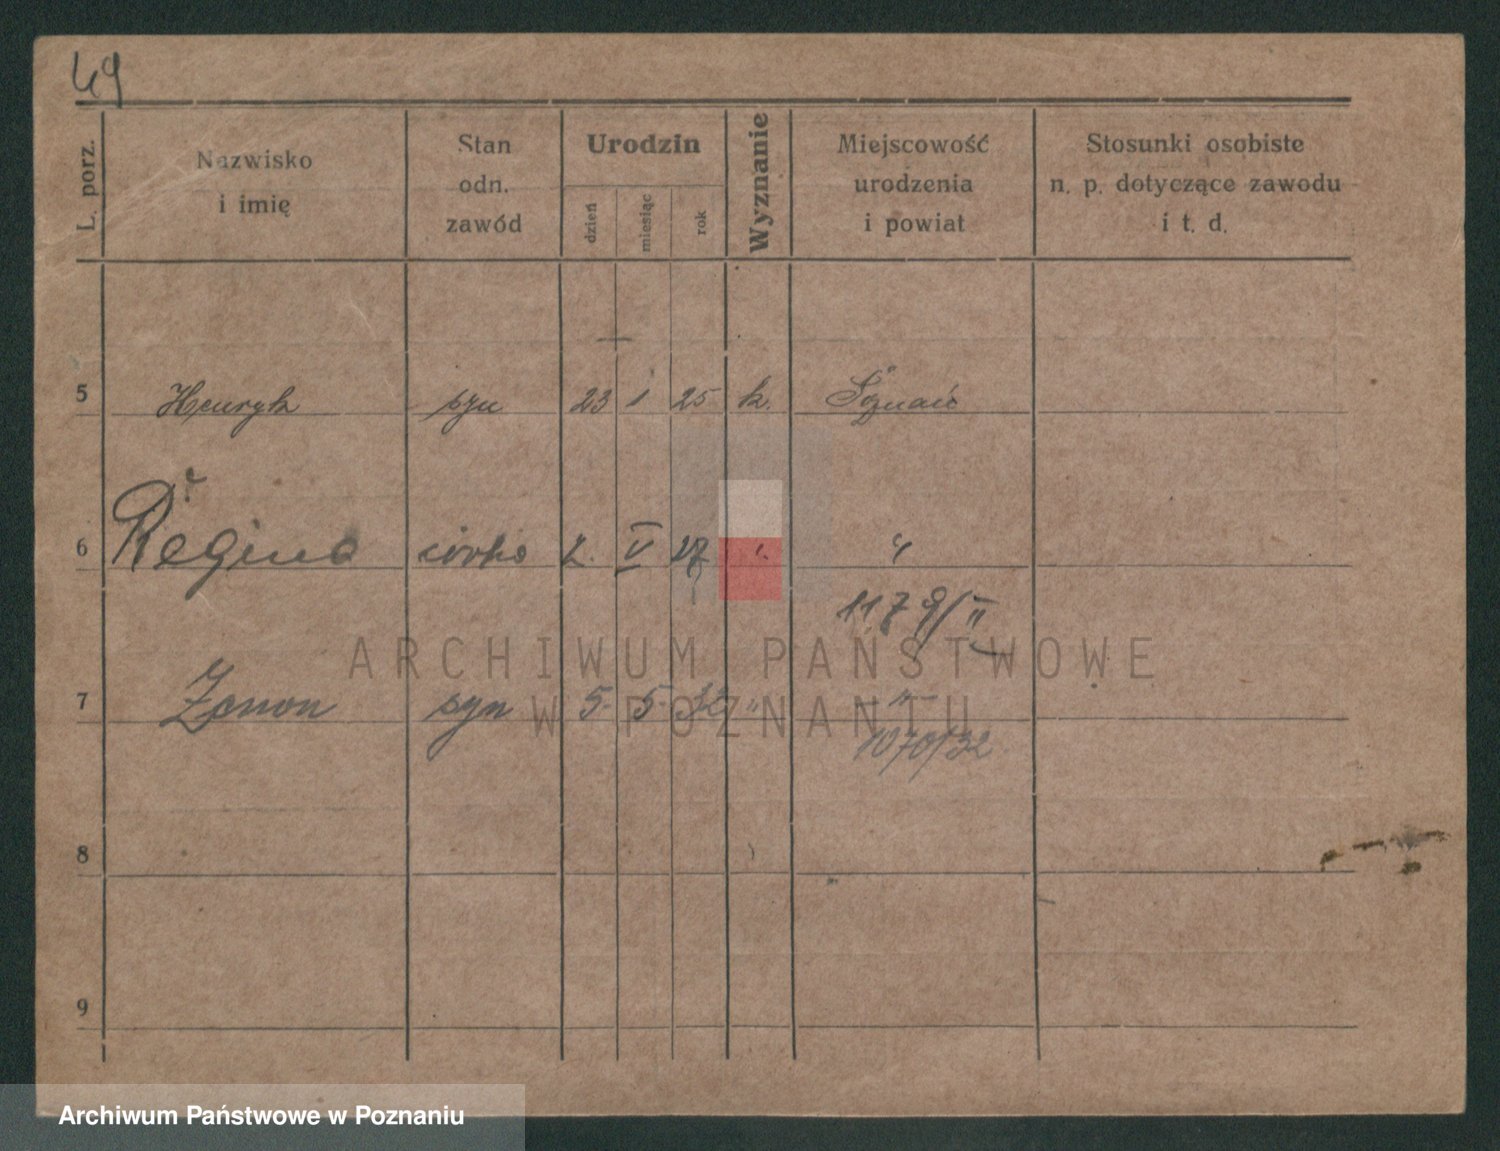 49
L. porz.
Nazwisko
i imię
Stan
odn.
zawód
Urodzin
dzień
miesiąc
rok
Wyznanie
Miejscowość
urodzenia
i powiat
Stosunki osobiste
n. p. dotyczące zawodu
i t. d.
5 Henryk syn 23 1 25 k.
6 Regina córka 2. V 27 "
1179/II
ARCHIWUM PAŃSTWOWE
W POZNANIU
7 Zenon syn 5. 5. 32 " "
1070/32
8
9
Archiwum Państwowe w Poznaniu